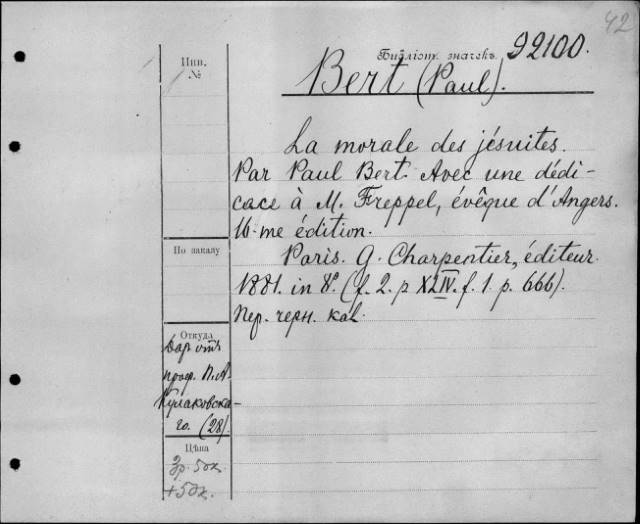 42
Библіот. значекъ 92100.
Инв.
№
Bert (Paul).
La morale des jésuites.
Par Paul Bert. Avec une dédi-
cace à M. Freppel, évêque d'Angers.
16-me édition.
По заказу
Paris. G. Charpentier, éditeur
1881. in 8º. (f. 2. p XLIV. f. 1. p. 666).
Пер. черн. кал.
Откуда
Дар отъ
проф. П. А.
Кулаковска-
го. (28).
Цѣна
3р. 50к.
+50к.